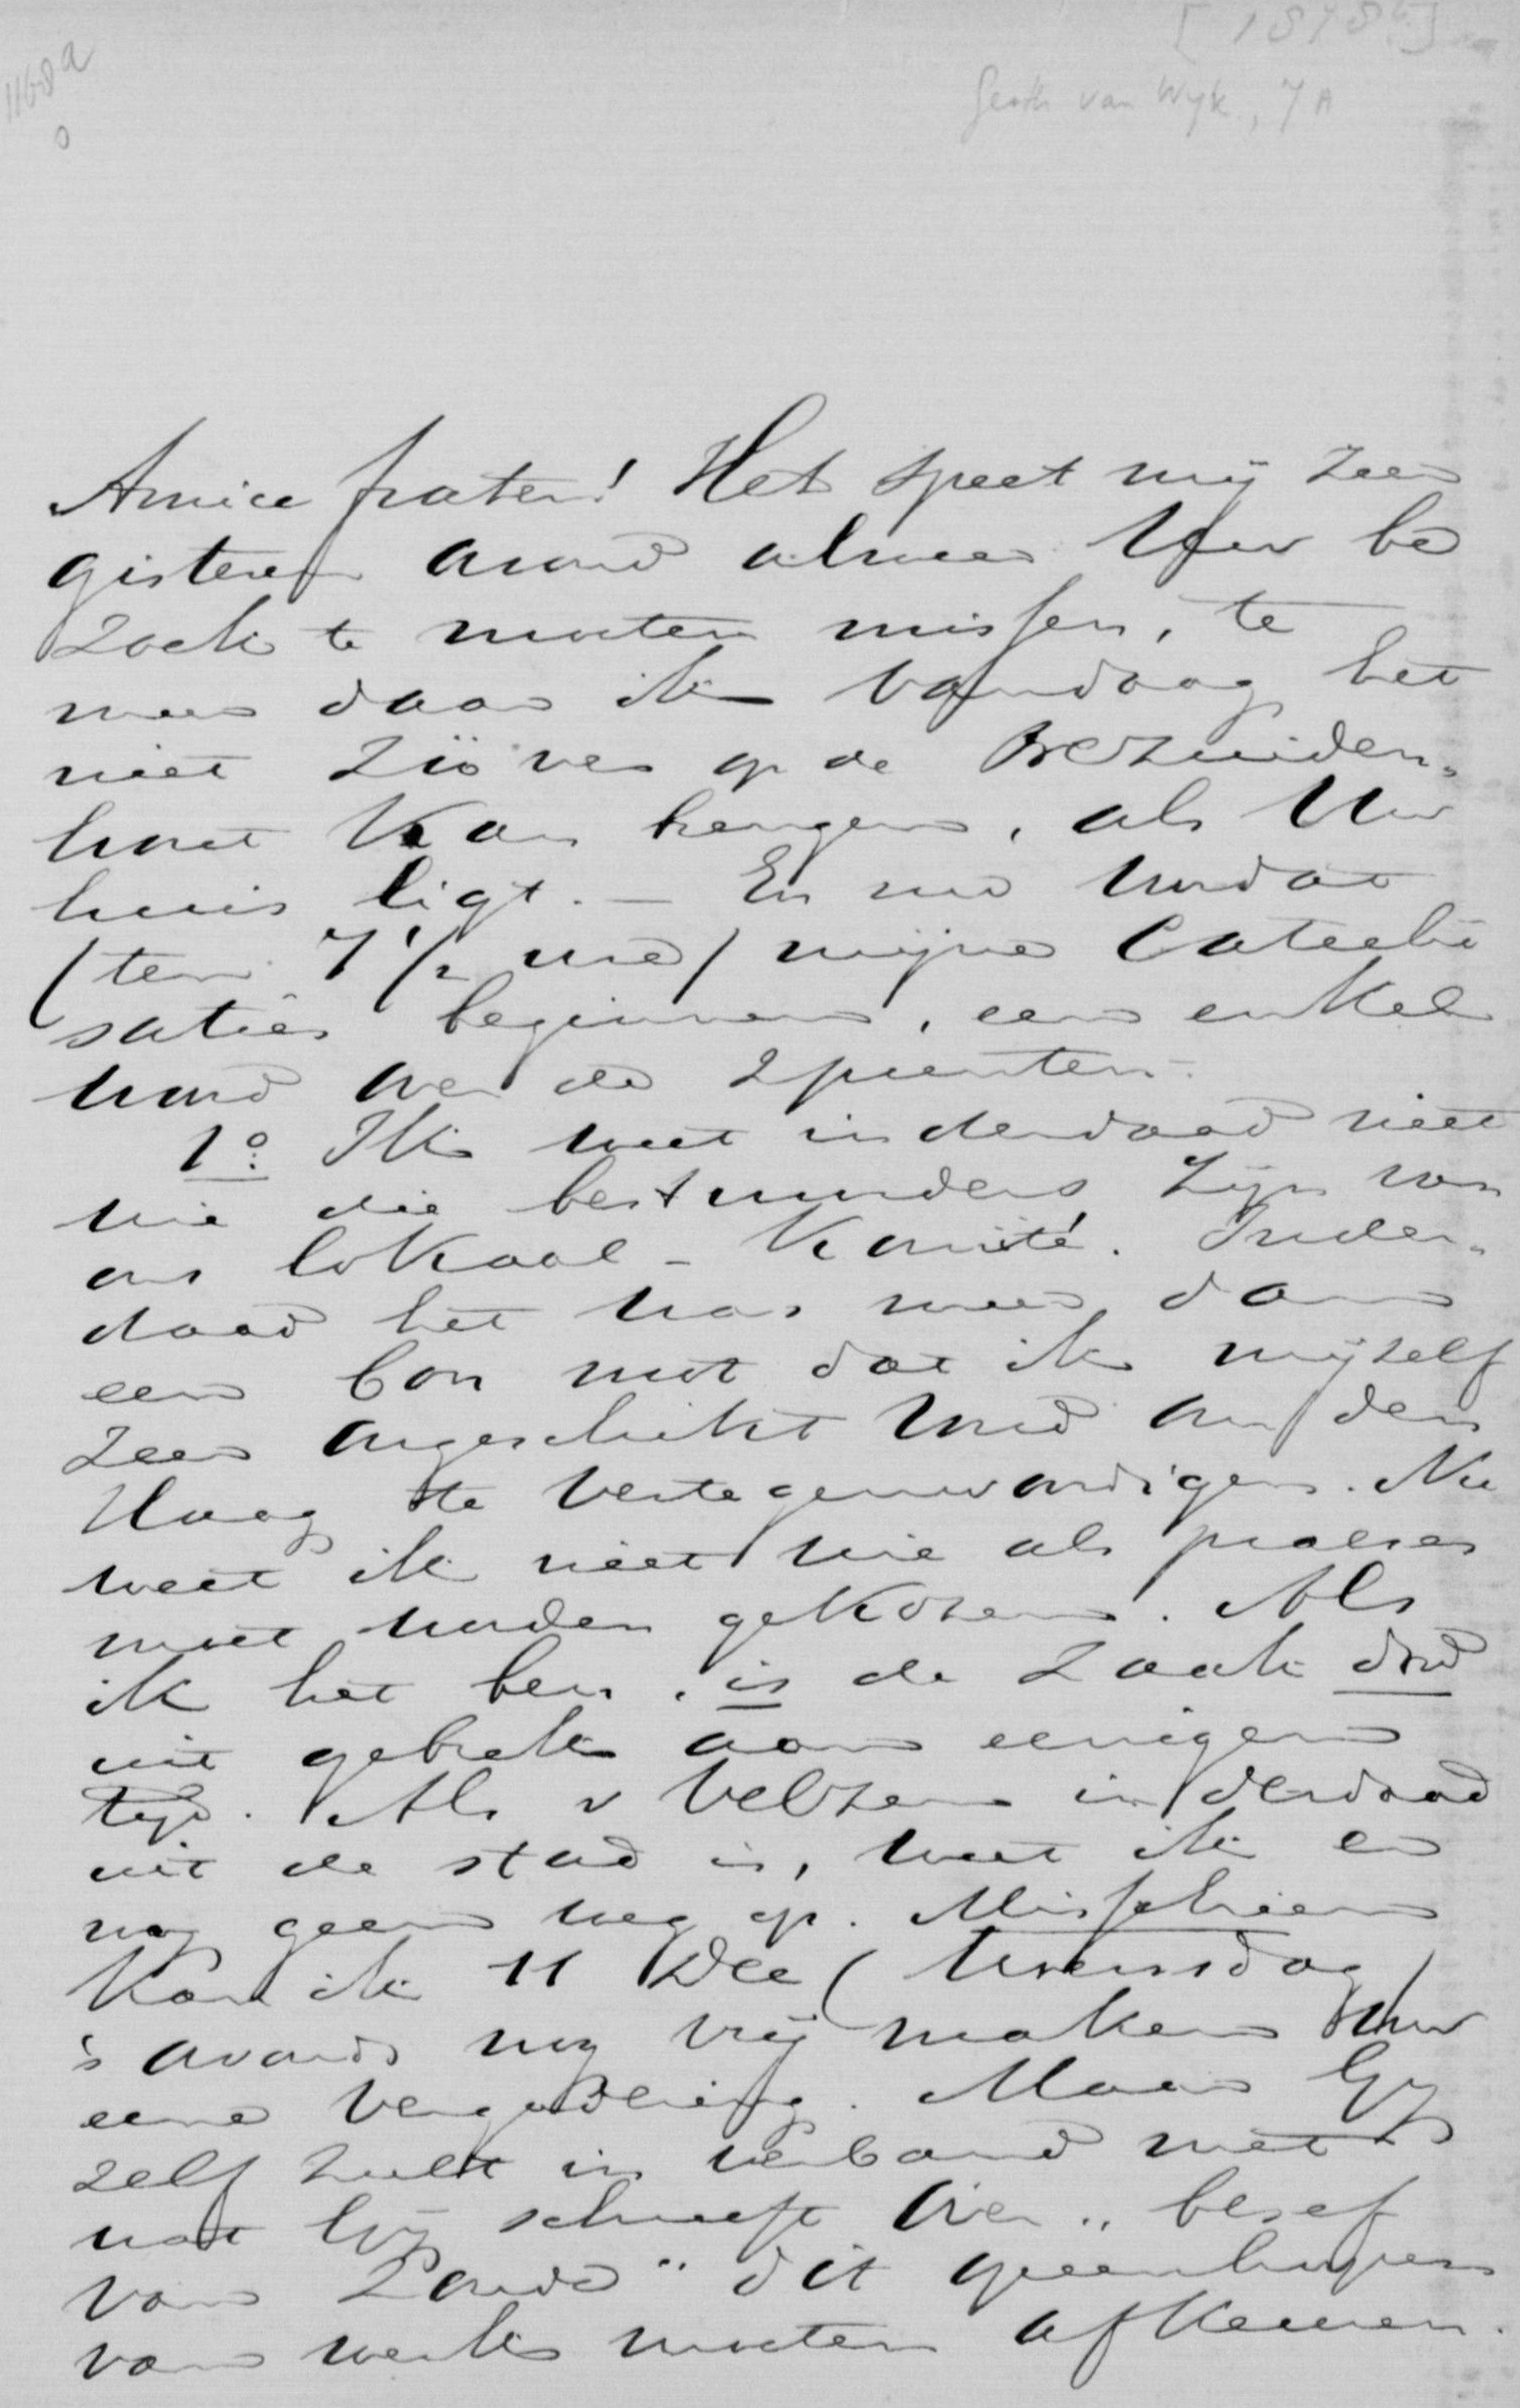 [1878?]
1168a
0
Gerth van Wyk, 7A
Amice frater! Het speet mij zeer
gisteren avond alweer Uw be
zoek te moeten missen, te
meer daar ik vandaag het
niet zóóver op de Bezuiden„
hout kan brengen, als Uw
huis ligt. — En nu voordat
(ten 7 1/2 ure) mijne Catechi
satiën beginnen, een enkel
woord over de 2 punten.
1o. Ik weet inderdaad niet
wie die bestuurders zijn van
ons lokaal - Komité. Inder„
daad het was meer dan
een bon mot dat ik mijzelf
zeer ongeschikt vind om den
Haag te vertegenwoordigen. Nu
weet ik niet wie als praeses
moet worden gekozen. Als
ik het ben, is de zaak dood
uit gebrek aan eenigen
tijd. Als v Velzen inderdaad
uit de stad is, weet ik er
nog geen weg op. Misschien
kan ik 11 Dec (Woensdag)
's avonds nog vrij maken voor
eene vergadering. Maar Gij
zelf zult in verband met
wat Gij schreeft over „besef
van zonde" dit
van werk moeten afkeuren.